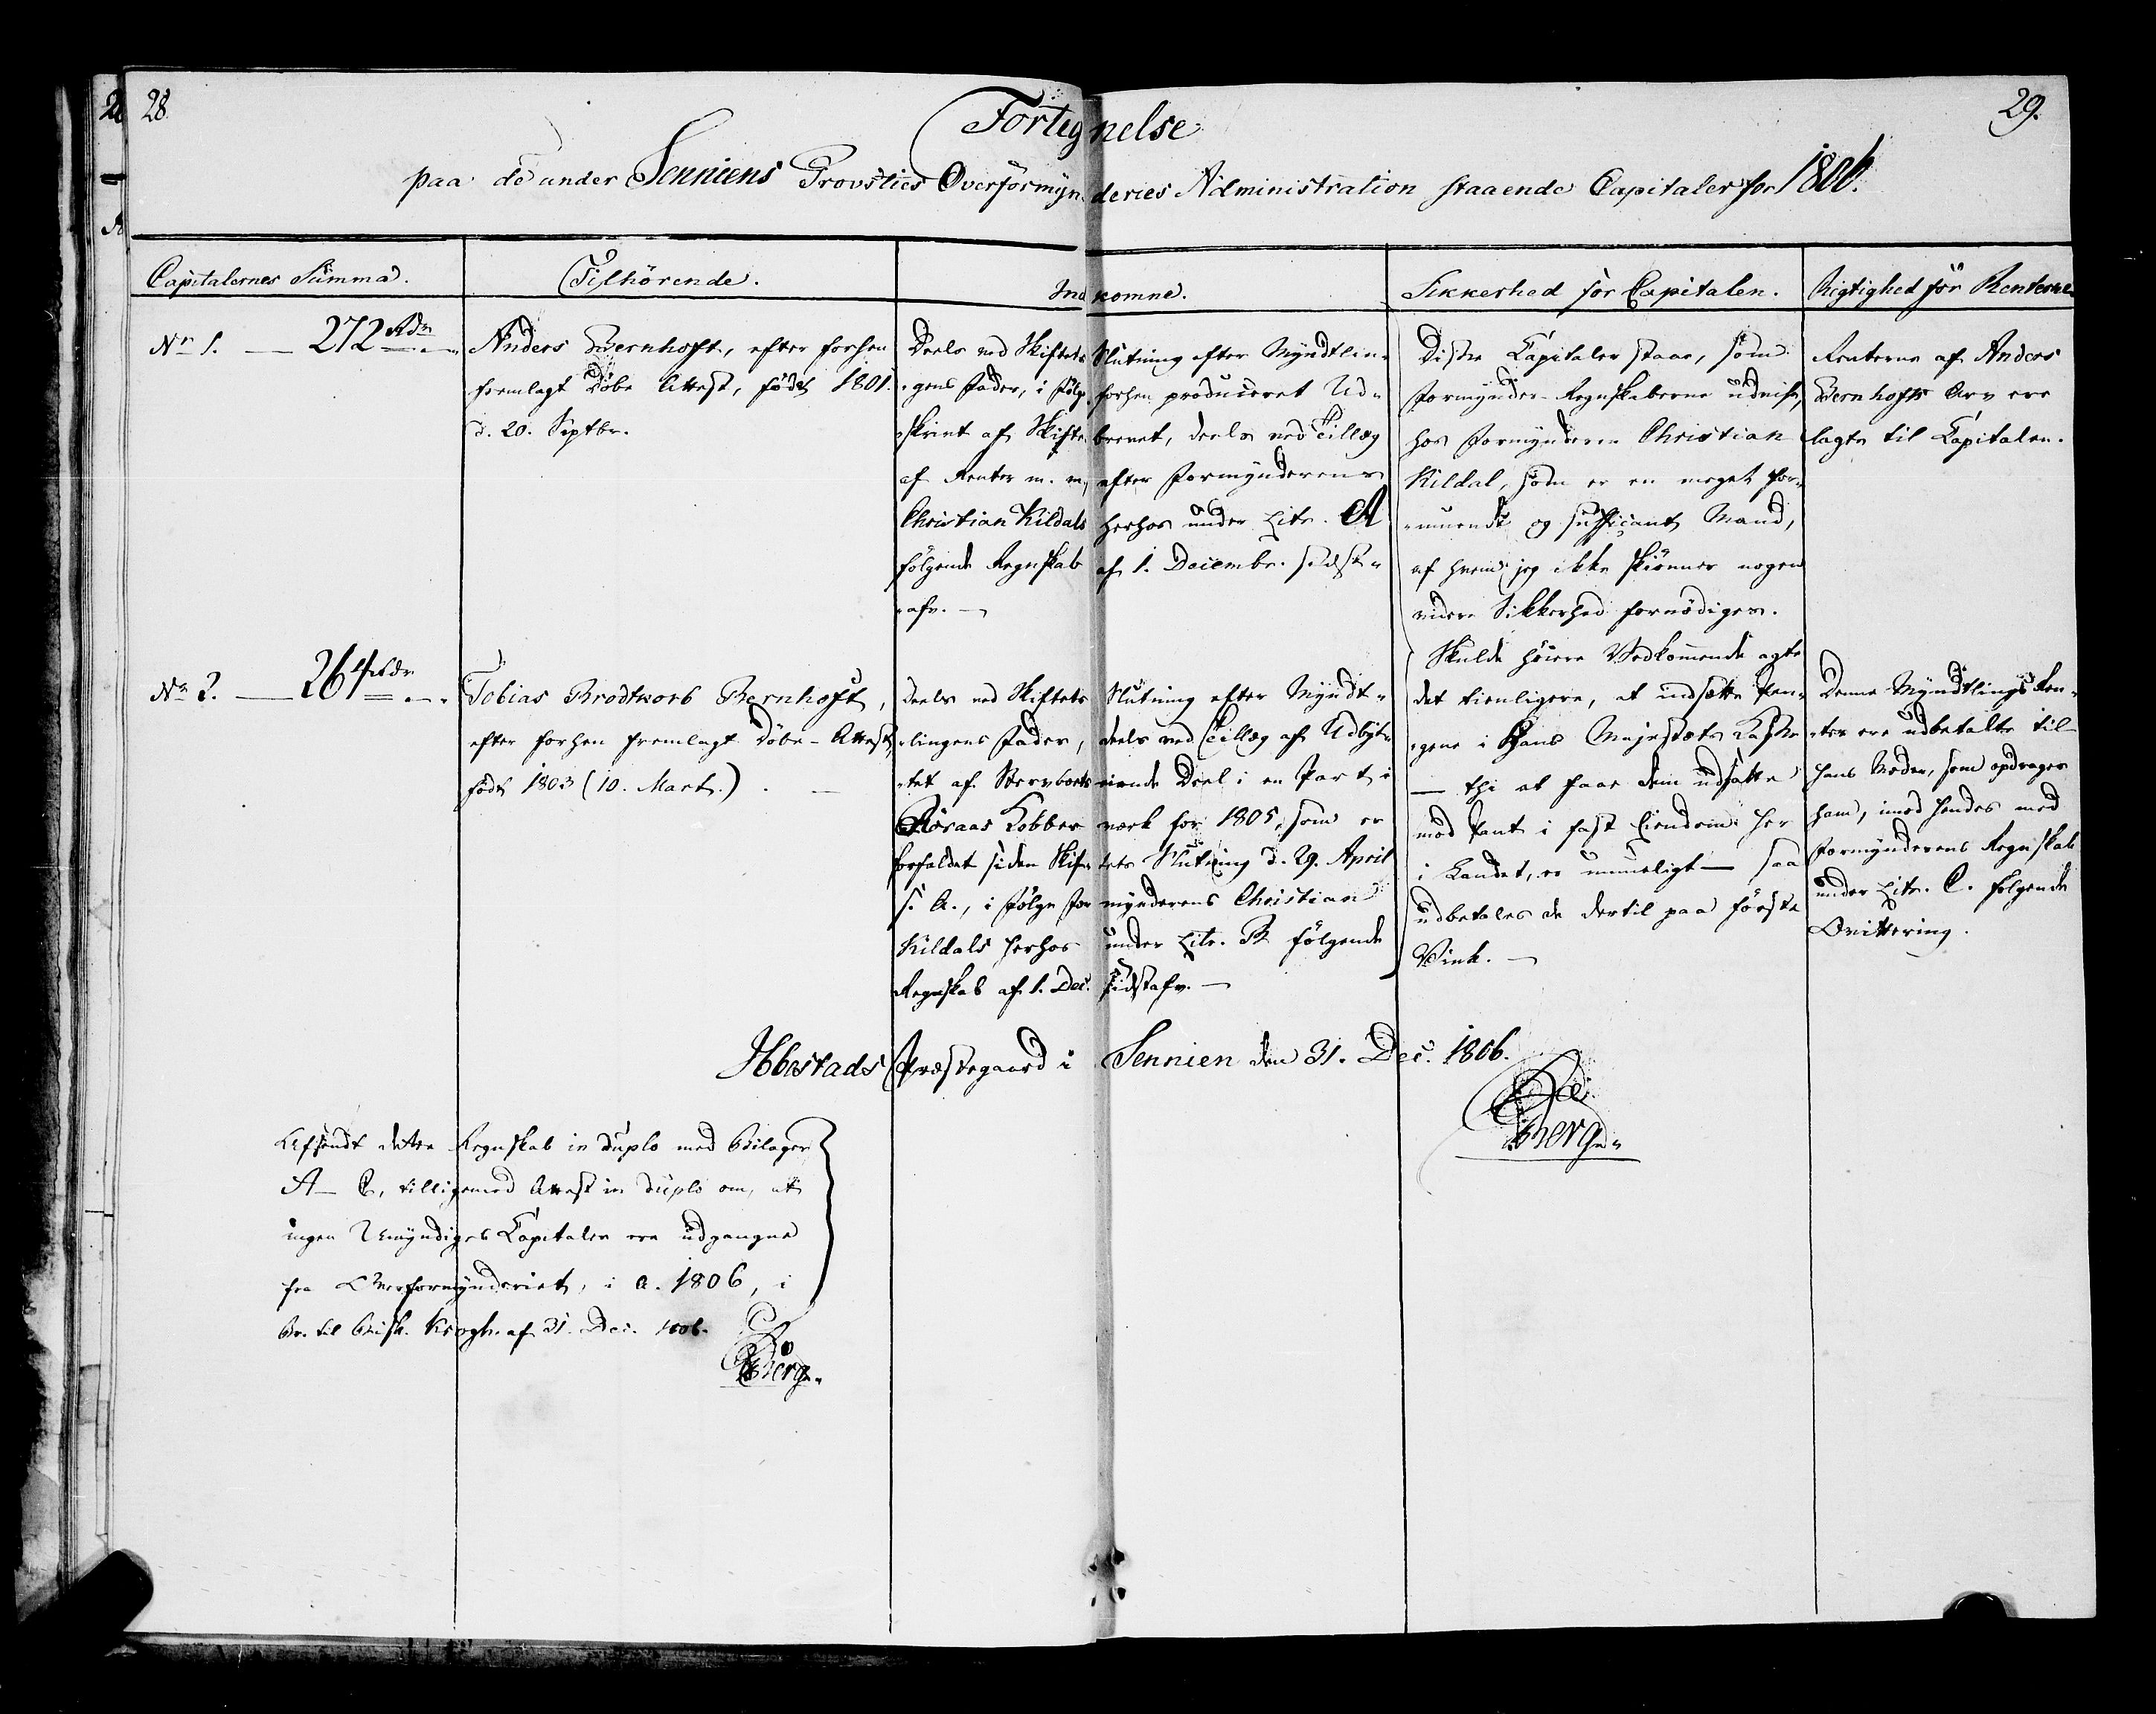 28.
29.
Fortegnelse
paa de under Senniens Provsties Overformynderies Administration staaende Capitaler for 1806.
Capitalernes Summa.
Tilhörende.
Indkomne.
Sikkerhed for Capitalen.
Rigtighed for Renterne
No 1. — 272 Rdr
Anders Bernhoft, efter forhen
fremlagt Döbe Attest, födt 1801.
d. 20. Septbr.
Deels ved Skiftets Slutning efter Myndtlin-
gens Fader, i Fölge forhen produceret Ud-
skrivt af Skiftebrevet, deels ved Tillæg
af Renter m. m, efter Formynderens
Christian Kildals herhos under Litr. A
fölgende Regnskab af 1. Decembr. sidst-
afv. —
Disse Capitaler staae, som
Formynder-Regnskaberne udvise,
hos Formynderen Christian
Kildal, som er en meget for-
muende og sufficant Mand,
af hvem jeg ikke skiönner nogen
videre Sikkerhed fornödiges.
Skulde höiere Vedkommende agte
det tienligere, at indsætte Pen-
gene i Hans Majestæts Kasse
— thi at faae dem udsatte
mod Pant i fast Eiendom her
i Landet, er umueligt — saa
udbetales de dertil paa förste
Vink. —
Renterne af Anders
Bernhofts Arv ere
lagte til Capitalen.
No 2. — 264 Rdr
Tobias Brodtkorb Bernhoft,
efter forhen fremlagt Döbe-Attest,
födt 1803 (10. Mart.) . —
Deels ved Skiftets Slutning efter Myndt-
lingens Fader, deels ved Tillæg af Udbyt-
tet af Stervboets eiende Deel i en Part i
Röraas Kobberværk for 1805, som er
forfaldet siden Skiftets Slutning d. 29. April
s. A., i Fölge Formynderens Christian
Kildals herhos under Litr. B fölgende
Regnskab af 1. Dec. sidstafv. —
Denne Myndtlings Ren-
ter ere udbetalte til
hans Moder, som opdrager
ham, imod hendes med
Formynderens Regnskab
under Litr. C. fölgende
Qvittering.
Ibestads Præstegaard i Sennien den 31. Dec. 1806.
Berg
Afsendt dette Regnskab in duplo med Bilager
A — C, tilligemed Attest in duplo om, at
ingen Umyndiges Capitaler ere udgangne
fra Overformynderiet, i A. 1806, i
Br. til Bisk. Krogh af 31. Dec. 1806.
Berg